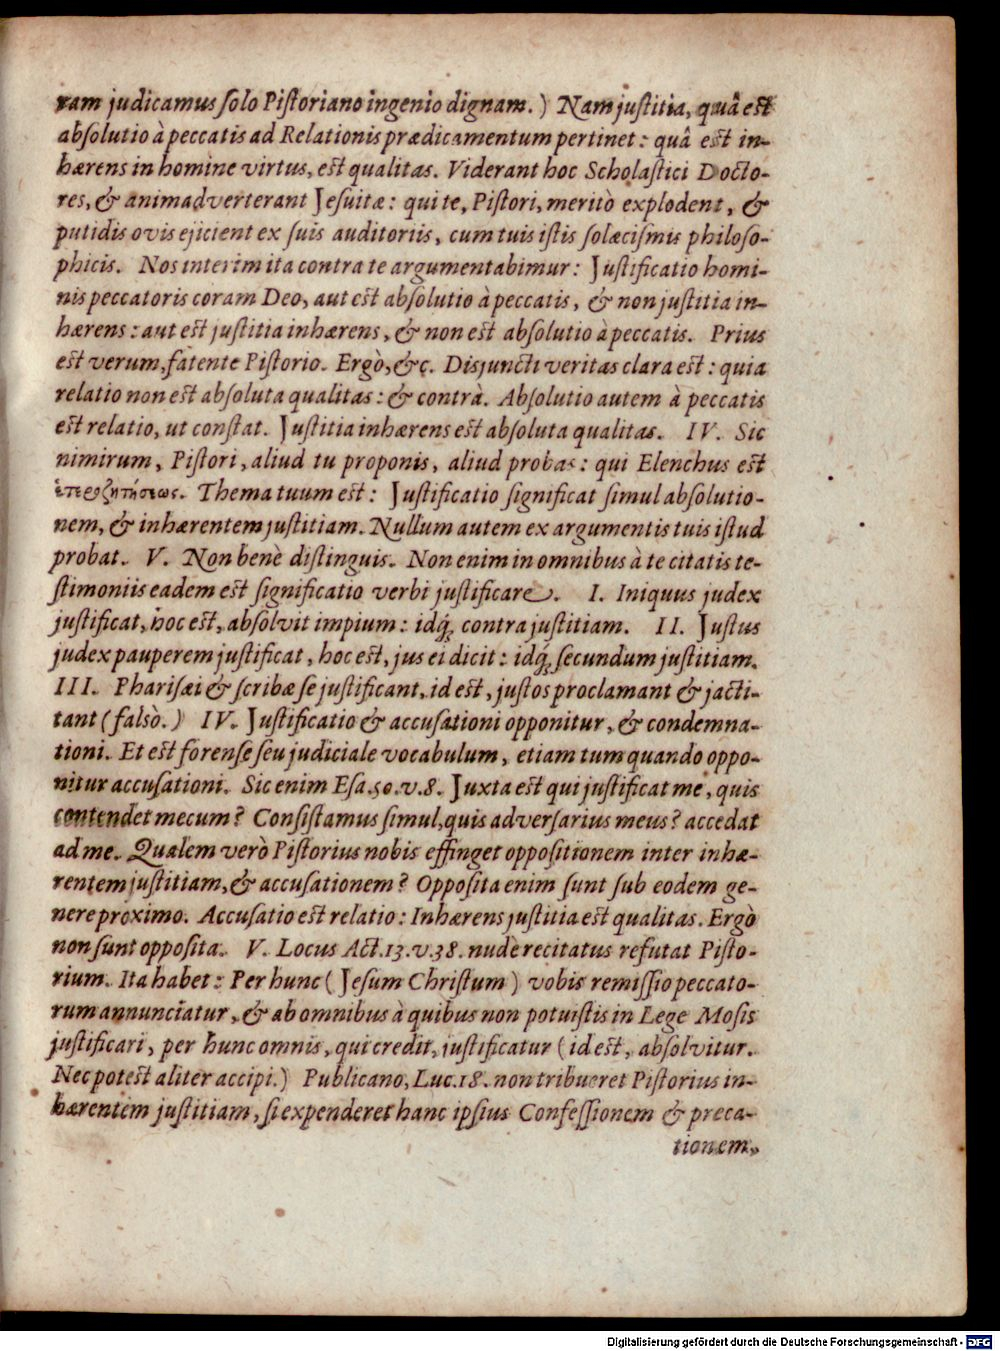 ram judicamus solo Pistoriano ingenio dignam.) Nam justitia, quâ est
absolutio à peccatis ad Relationis prædicamentum pertinet: quâ est in-
hærens in homine virtus, est qualitas. Viderant hoc Scholastici Docto-
res, & animadverterant Jesuitæ: qui te, Pistori, meritò explodent, &
putidis ovis ejicient ex suis auditoriis, cum tuis istis solæcismis philoso-
phicis. Nos interim ita contra te argumentabimur: Justificatio homi-
nis peccatoris coram Deo, aut est absolutio à peccatis, & non justitia in-
hærens: aut est justitia inhærens, & non est absolutio à peccatis. Prius
est verum, fatente Pistorio. Ergò, &c. Disjuncti veritas clara est: quia
relatio non est absoluta qualitas: & contrà. Absolutio autem à peccatis
est relatio, ut constat. Justitia inhærens est absoluta qualitas. IV. Sic
nimirum, Pistori, aliud tu proponis, aliud probas: qui Elenchus est
ἑτεροζητήσεως. Thema tuum est: Justificatio significat simul absolutio-
nem, & inhærentem justitiam. Nullum autem ex argumentis tuis istud
probat. V. Non benè distinguis. Non enim in omnibus à te citatis te-
stimoniis eadem est significatio verbi justificare. I. Iniquus judex
justificat, hoc est, absolvit impium: idq́; contra justitiam. II. Justus
judex pauperem justificat, hoc est, jus ei dicit: idq́; secundum justitiam.
III. Pharisæi & scribæ se justificant, id est, justos proclamant & jacti-
tant (falsò.) IV. Justificatio & accusationi opponitur, & condemna-
tioni. Et est forense seu judiciale vocabulum, etiam tum quando oppo-
nitur accusationi. Sic enim Esa.50.v.8. Juxta est qui justificat me, quis
contendet mecum? Consistamus simul, quis adversarius meus? accedat
ad me. Qualem verò Pistorius nobis effinget oppositionem inter inhæ-
rentem justitiam, & accusationem? Opposita enim sunt sub eodem ge-
nere proximo. Accusatio est relatio: Inhærens justitia est qualitas. Ergò
non sunt opposita. V. Locus Act.13.v.38. nudè recitatus refutat Pisto-
rium. Ita habet: Per hunc (Jesum Christum) vobis remissio peccato-
rum annunciatur, & ab omnibus à quibus non potuistis in Lege Mosis
justificari, per hunc omnis, qui credit, justificatur (id est, absolvitur.
Nec potest aliter accipi.) Publicano, Luc.18. non tribueret Pistorius in-
hærentem justitiam, si expenderet hanc ipsius Confessionem & preca-
tionem,
Digitalisierung gefördert durch die Deutsche Forschungsgemeinschaft - DFG